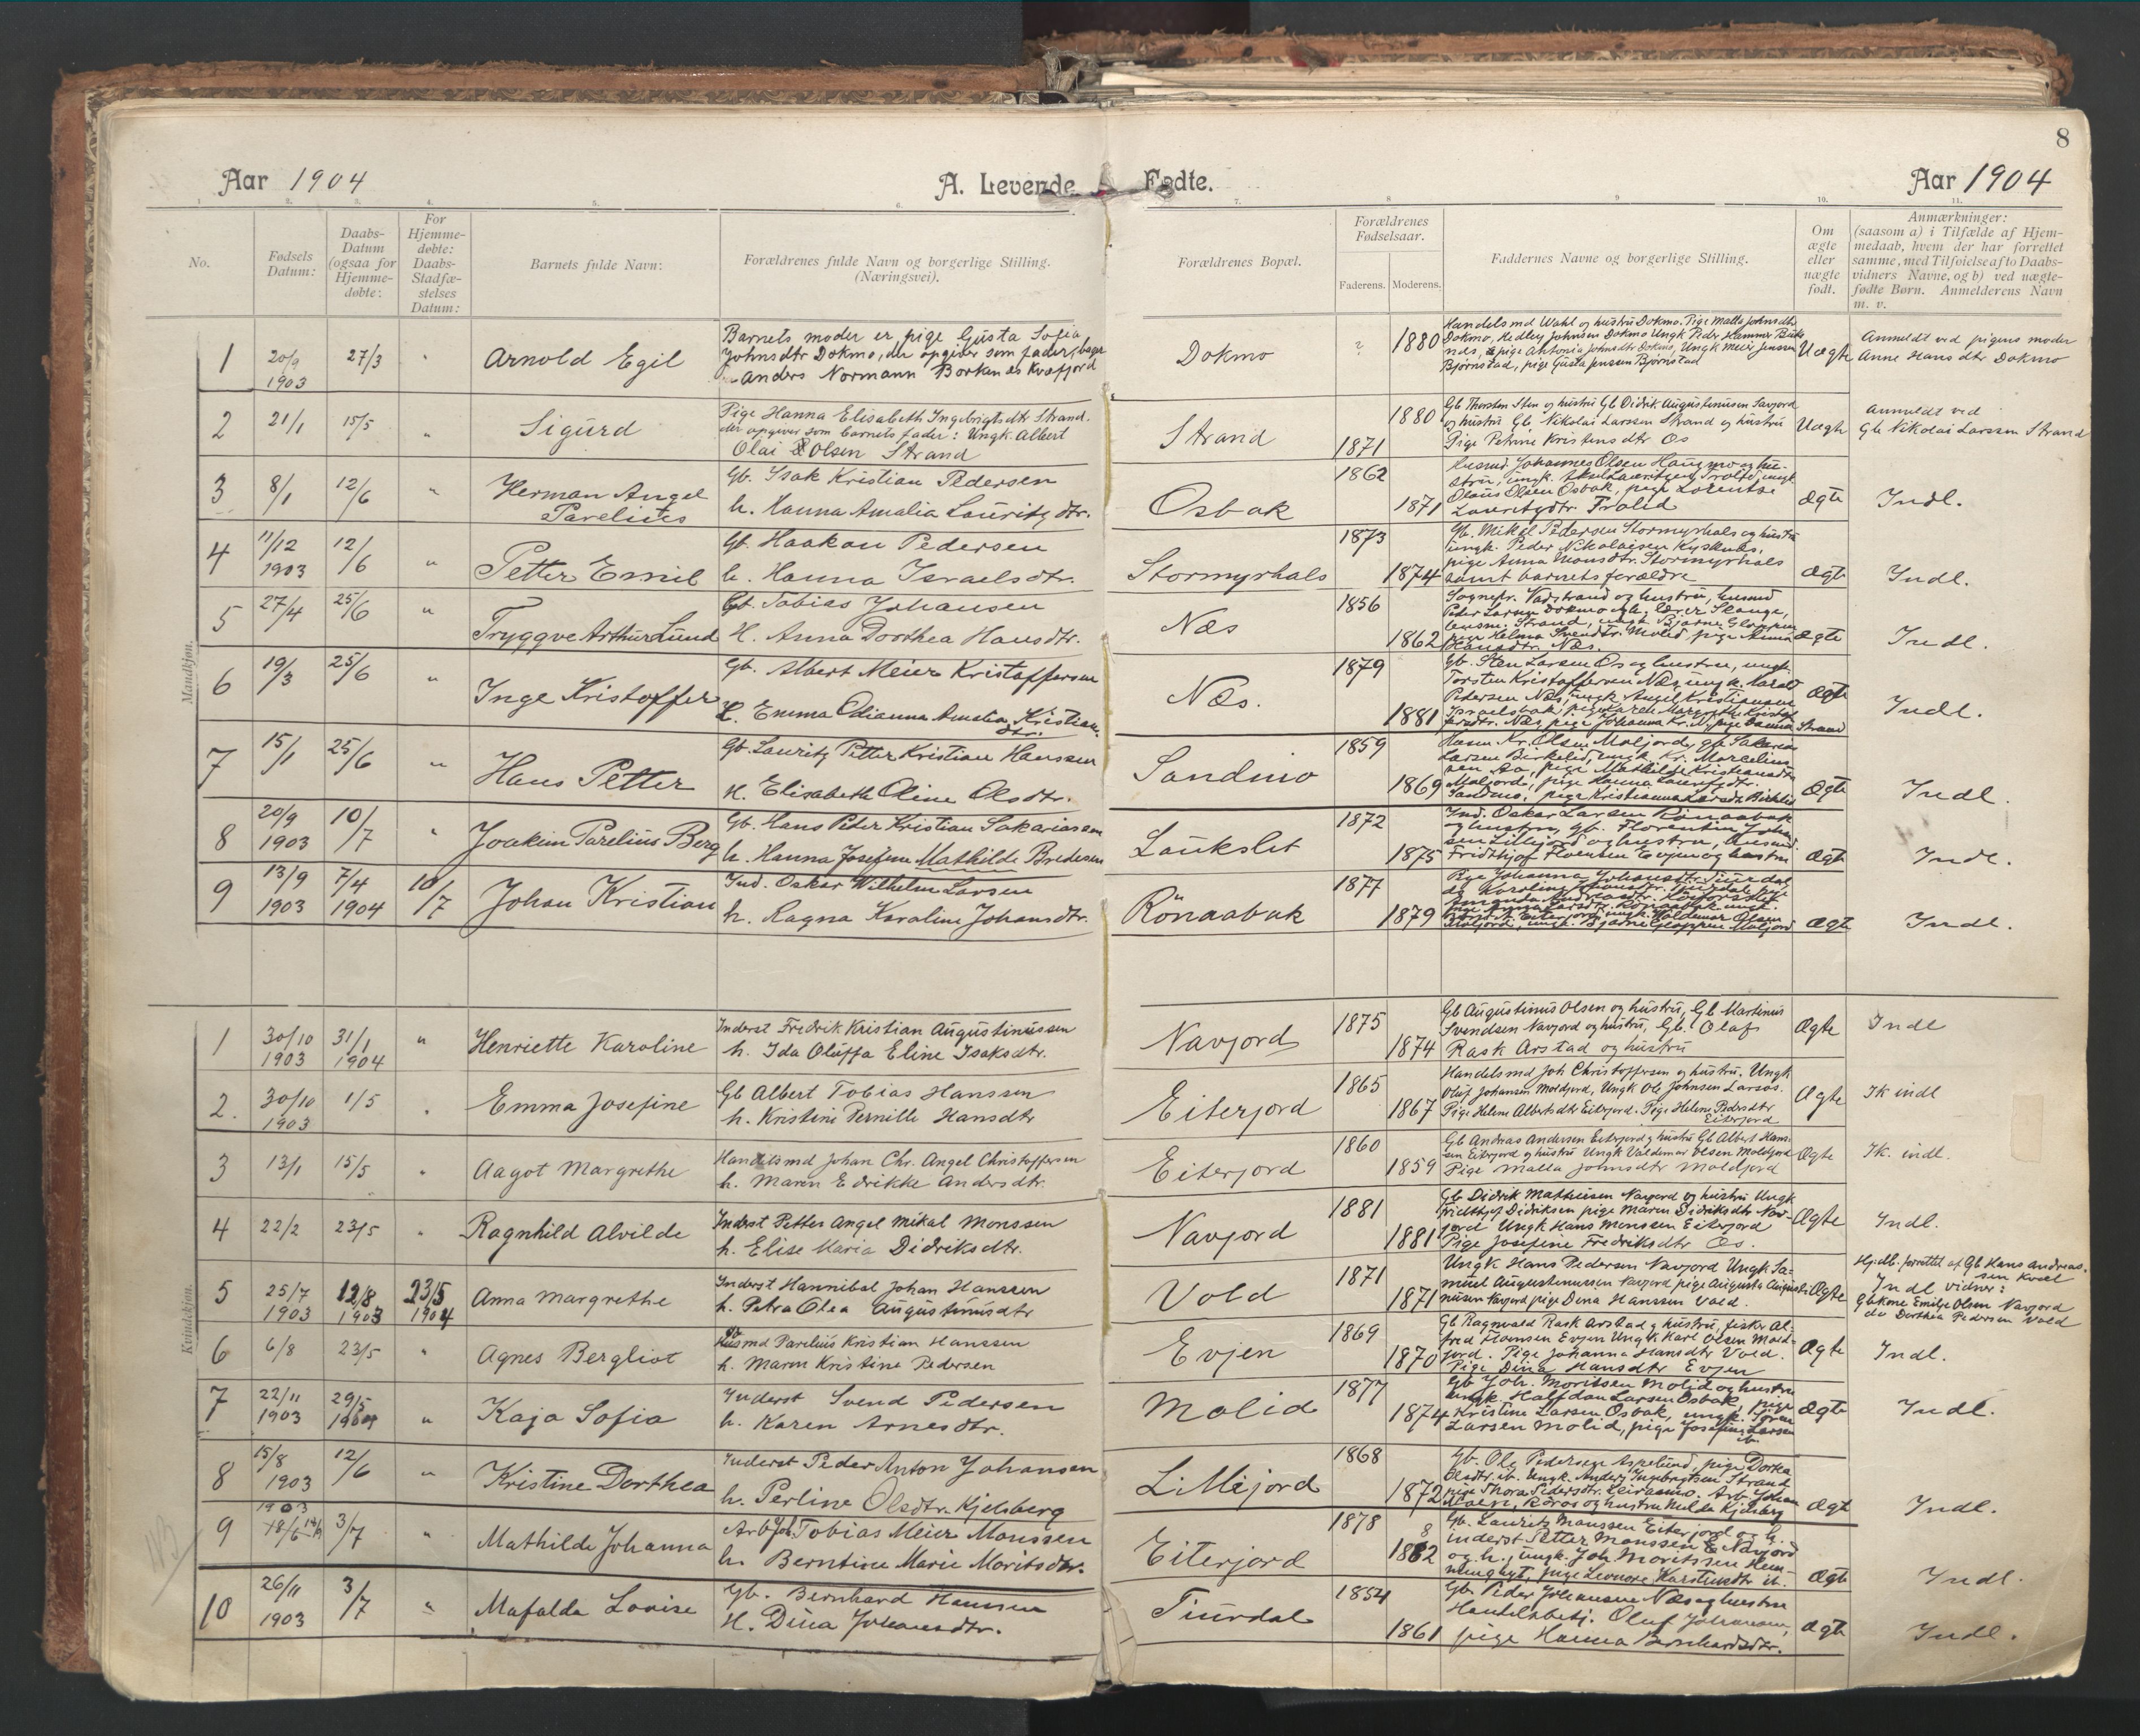 8
Aar 1904
A. Levende Fødte.
Aar 1904
1. 2. 3. 4. 5. 6. 7. 8 9 10. 11.
No.
Fødsels Datum:
Daabs-Datum (ogsaa for Hjemme-døbte:
For Hjemme-døbte: Daabs-Stadfæ-stelses Datum:
Barnets fulde Navn:
Forældrenes fulde Navn og borgerlige Stilling.
(Næringsvei).
Forældrenes Bopæl.
Forældrenes Fødselsaar.
Faderens. Moderens.
Faddernes Navne og borgerlige Stilling.
Om ægte eller uægte født.
Anmærkninger:
(saasom a) i Tilfælde af Hjem-
medaab, hvem der har forrettet
samme, med Tilføielse af to Daabs-
vidners Navne, og b) ved uægte-
fødte Børn. Anmelderens Navn
m. v.
Mandkjøn.
1 20/9 1903 27/3 " Arnold Egil
Barnets moder er pige Gusta Sofia
Johnsdtr Dokmo, der opgiver som fader,
Anders Normann Borkenes Kvæfjord
Dokmo ? 1880
Handelsmd Wahl og hustru Dokmo. Pige Malla Johnsdtr
Dokmo, Kedley Johnsen Dokmo Ungk Peder Hammer
pige Antonia Johnsdtr Dokmo, Ungk Meier Jenssen
Bjørnstad, pige Gusta Jenssen Bjørnstad
Uægte
Anmeldt ved pigens moder
Anne Hansdtr Dokmo
2 21/1 15/5 " Sigurd
Pige Hanna Elisabeth Ingebrigtsdtr Strand.
der opgiver som barnets fader: Ungk. Albert
Olai Olsen Strand
Strand 1871 1880
Gb. Thorsten Sten og hustru Gb Didrik Augustinusen Navjord
og hustru Gb. Nikolai Larssen Strand og hustru
Pige Petrine Kristensdtr Os
Uægte
Anmeldt ved
Gb Nikolai Larssen Strand
3 8/1 12/6 " Herman Angel
Parelius
Gb. Isak Kristian Pedersen
h. Hanna Amalia Lauritzdtr.
Osbak 1862 1871
Johannes Olsen Haugmo og hu-
stru, ungk.
Olaus Olsen Osbak, pige Lorentse
Lauritzdtr Frolid
Ægte Indl.
4 11/12 1903 12/6 " Petter Emil
Gb. Haakon Pedersen
h. Hanna Israelsdtr.
Stormyrhals 1873 1874
Gb. Mikal Pedersen Stormyrhals og hustru
ungk. Peder Nikolaisen
pige Anna Monsdtr. Stormyrhals
samt barnets forældre
Ægte Indl.
5 27/4 25/6 " Tryggve Arthur Lund
Gb. Tobias Johansen
H. Anna Dorthea Hansdtr.
Næs 1856 1862
Sognepr. Vadstrand og hustru, husmd
Peder Larsen Dokmo og h. lærer Slange,
lensm. Strand, ungk. Bjarne Gloppen
pige Helma Svendsdtr. Molid, pige Anna
Hansdtr. Næs.
Ægte Indl.
6 19/3 25/6 " Inge Kristoffer
Gb. Albert Meier Kristoffersen
H. Emma Odianna Amalia Kristian-
dtr.
Næs. 1879 1881
Gb. Sten Larsen Os og hustru, ungk.
Torsten Kristoffersen Næs, ungk. Harald
Pedersen Næs, ungk. Angel Kristiansen
Israelsbak, pige Karen Margrethe
Ægte Indl.
7 15/1 25/6 " Hans Petter
Gb. Lauritz Petter Kristian Hanssen
H. Elisabeth Oline Olsdtr.
Sandmo 1859 1869
Husm Kr. Olsen Moljord, gb. Sakarias
Larsen Birkelid, ungk. Kr. Marcelius-
sen Aa, pige Mathilde Kristiansdtr
Moljord, pige Hanna Lauritzdtr.
Sandmo, pige Kristianna Larsdtr Birkelid
Ægte Indl.
8 20/9 1903 10/7 " Joakim Parelius Berg
Gb. Hans Peter Kristian Sakariassen
h. Hanna Josefine Mathilde Bredesen
Laukslet 1872 1875
Ind. Oskar Larsen Rönaabak
og hustru, gb. Florentin Johan-
sen Lillejord og hustru, husmd.
Fridthjof Floensen Evjen og hustru
Ægte Indl.
9 13/9 1903 7/4 1904 10/7 Johan Kristian
Ind. Oskar Wilhelm Larsen
h. Ragna Karoline Johansdtr.
Rönaabak 1877 1879
Pige Johanna Johansdtr. Tuurdal,
do Karoline Johansdtr. Tuurdal, pige
Eiterjord, ungk. Waldemar Olsen
Moljord, ungk. Bjarne Gloppen Moljord
Ægte Indl.
Kvindekjøn.
1 30/10 1903 31/1 1904 " Henriette Karoline
Inderst Fredrik Kristian Augustinussen
h. Ida Oluffa Eline Isaksdtr.
Navjord 1875 1874
Gb Augustinus Olsen og hustru, Gb Martinus
Svendsen Navjord og hustru, Gb. Olaf
Rask Arstad og hustru
Ægte Indl
2. 30/10 1903 1/5 " Emma Josefine
Gb Albert Tobias Hanssen
h. Kristine Pernille Hansdtr
Eiterjord 1865 1867
Handelsmd Joh Christoffersen og hustru, Ungk
Oluf Johansen Moldjord, Ungk Ole Johnsen Larsos.
Pige Helene Albertsdtr Eiterjord. Pige Helene Pedersdtr
Eiterjord
Ægte Ik indl
3 13/1 15/5 " Aagot Margrethe
Handelsmd Johan Chr. Angel Christoffersen
h. Maren Edrikke Andersdtr.
Eiterjord 1860 1859
Gb Andreas Andersen Eiterjord og hustru Gb Albert Hans-
sen Eiterjord og hustru Ungk Valdemar Olsen Moldjord
Pige Malla Johnsdtr Moldjord
Ægte Ik. indl.
4 22/2 23/5 " Ragnhild Alvilde
Inderst Petter Angel Mikal Monssen
h. Elise Maria Didriksdtr.
Navjord 1881 1881
Gb Didrik Mathisen Navjord og hustru Ungk
Fridthjof Didriksen pige Maren Didriksdtr Nav-
jord Ungk Hans Monssen Eiterjord
Pige Josefine Fredriksdtr Os.
Ægte Indl.
5 25/7 1903 12/8 1903 23/5 1904 Anna Margrethe
Inderst Hannibal Johan Hanssen
h. Petra Olea Augustinusdtr
Vold 1871 1871
Ungk Hans Pedersen Navjord Ungk Sa-
muel Augustinussen Navjord pige Augusta Augusti-
nusen Navjord pige Dena Hanssen Vold.
Ægte
Hjdb. forrettet af Gb Hans Andreas-
sen Kvæl
Indl vidner:
Gbkone Emilie Olsen Navjord
do Dorthea Pedersen Vold
6 6/8 23/5 " Agnes Bergliot
Husmd Parelius Kristian Hanssen
h. Maren Kristine Pedersen
Evjen 1869 1870
Gb Ragnvald Rask Arstad og hustru, fisker Al-
fred Floensen Evjen Ungk Karl Olsen Mold-
jord. Pige Johanna Hansdtr Vold.
Pige Dina Hansdtr Evjen
Ægte Indl.
7 22/11 1903 29/5 1904 " Kaja Sofia
Inderst Svend Pedersen
h. Karen Arnesdtr.
Molid 1877 1874
Gb Joh. Moritsen Molid og hustru
ungk. Halfdan Larsen Osbak, pige
Kristine Larsen Osbak, ungk. Sören
Larsen Molid, pige Josefine Larsen
ib.
Ægte Indl.
8 15/8 1903 12/6 " Kristine Dorthea
Inderst Peder Anton Johansen
h. Perline Olsdtr. Kjelsberg
Lillejord 1868 1872
Gb. Ole Pedersen Aspelund, pige Dortea
Olsdtr. ib. Ungk. Anders Ingebrigtsen Strand
pige Thora Pedersdtr. Leiraamo. Arb. Johan
Moen, Röros og hustru Milda Kjelsberg
Ægte Indl.
9 1903 18/6 3/7 " Mathilde Johanna
Arb. Joh. Tobias Meier Monssen
h. Berntine Marie Moritsdtr.
Eiterjord 1878 1882
Gb. Lauritz Monssen Eiterjord og h.
inderst Petter Monssen Navjord
og h., ungk. Joh. Moritssen Hem-
minghyt, pige Leonore Karstensdtr ib.
Ægte Indl.
NB
10 26/11 1903 3/7 " Mafalda Lovise
Gb. Bernhard Hansen
H. Dina Johansdtr.
Tuurdal 1854 1861
Gb. Peder Johansen Næs og hustru
Handelsbetj. Oluf Johansen,
pige Hanna Bernhardsdtr.
Ægte Indl.